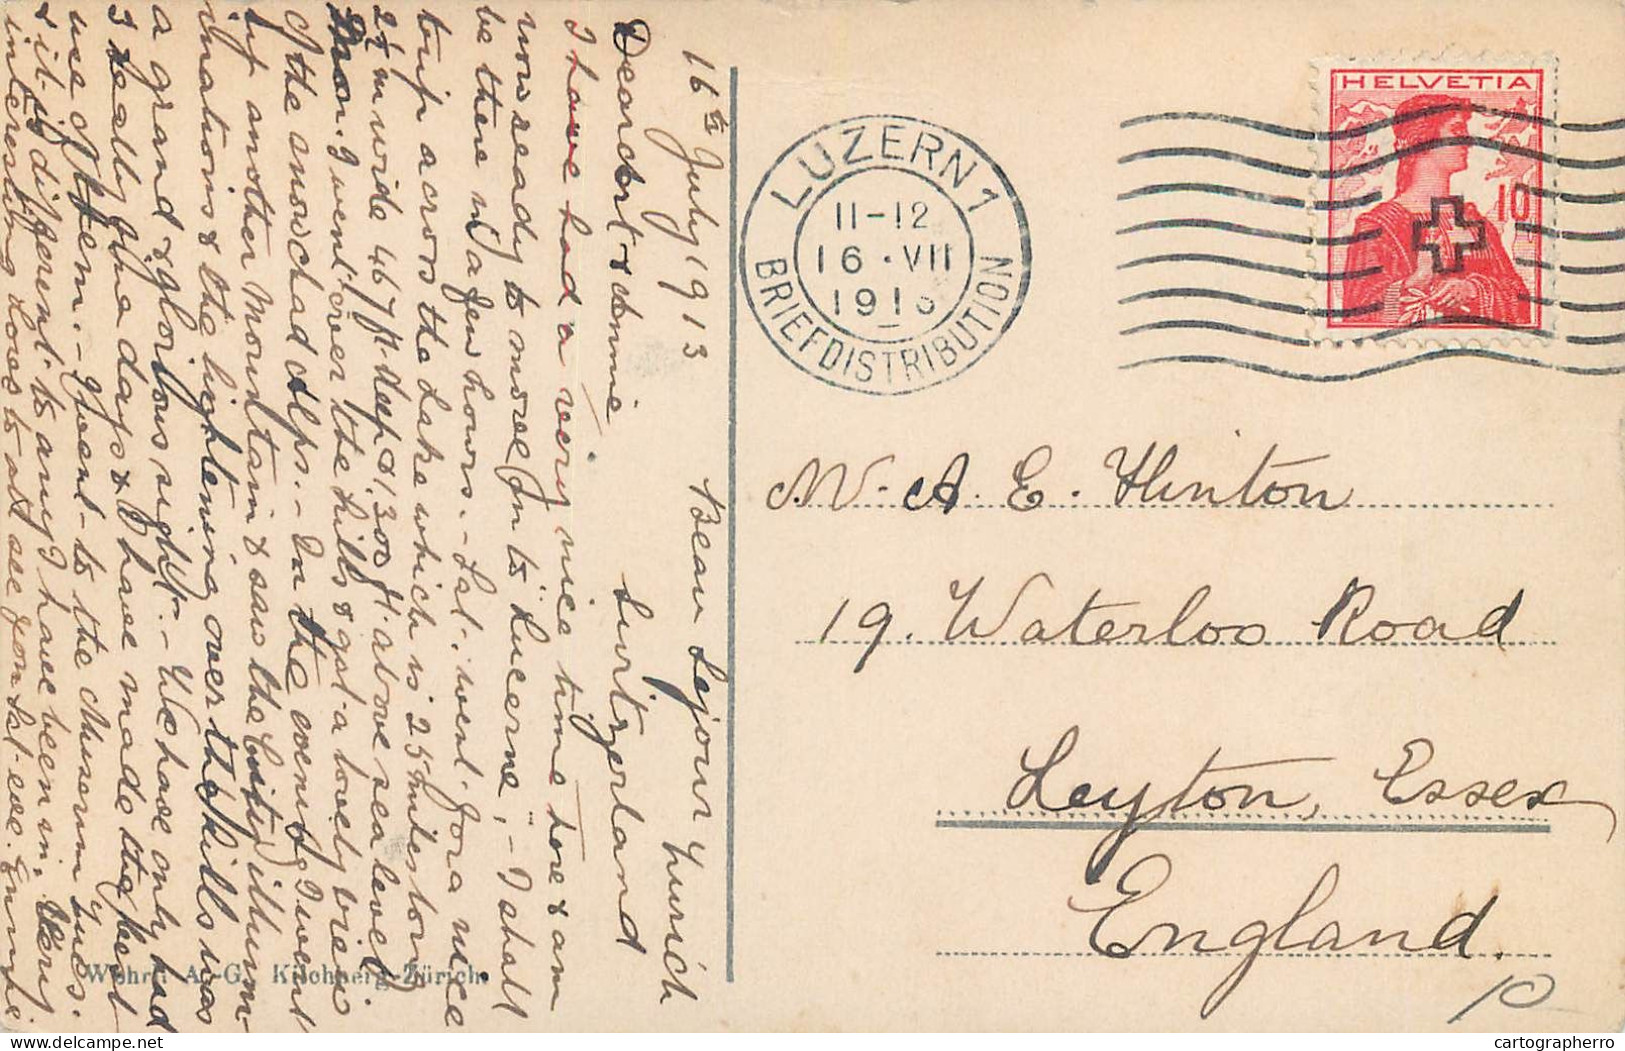 16th July 1913 Beau Sejour Zurich
Switzerland
Dear Bert & Annie
I have had a very nice time here & am
now ready to move on to "Lucerne", - I shall
be there in a few hours. - Sat. i. went for a nice
trip across the Lake which is 25 miles long
2½ m wide 467 ft deep & 1,300 ft above sea level,
Mon. I went over the hills & got a lovely view
of the snowclad alps. - In the evening I went
up another mountain & saw the Cities illumi-
inations & the lightening over the hills was
a grand & glorious sight. - We have only had
3 really fine days & I have made the best
use of them. - I went to the Museum Tues.
& it is different to any I have been in. Very
interesting. Love to all see you Sat. eve. Emmie
Wehrli A.-G. Kilchberg-Zürich.
LUZERN 1
11-12
16·VII
191
BRIEFDISTRIBUTION
HELVETIA
10
A. E. Hinton
19. Waterloo Road
Leyton, Essex
England.
10
cartographerro